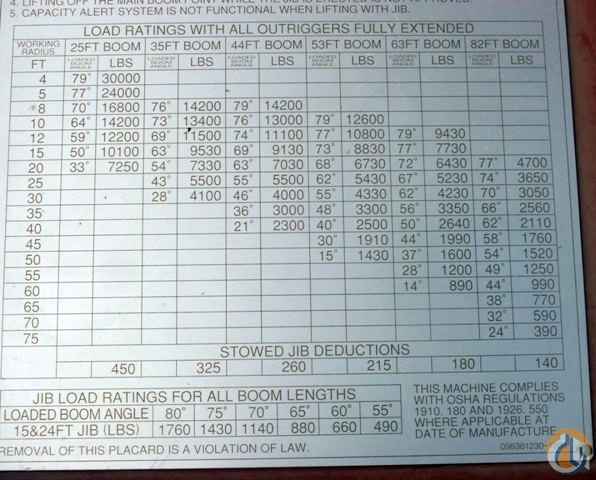 4. LIFTING OFF THE MAIN BOOM POINT WHILE THE JIB IS ERECTED IS NOT APPROVED.
5. CAPACITY ALERT SYSTEM IS NOT FUNCTIONAL WHEN LIFTING WITH JIB.
LOAD RATINGS WITH ALL OUTRIGGERS FULLY EXTENDED
WORKING RADIUS 25FT BOOM 35FT BOOM 44FT BOOM 53FT BOOM 63FT BOOM 82FT BOOM
FT LOADED BOOM ANGLE LBS LOADED BOOM ANGLE LBS LOADED BOOM ANGLE LBS LOADED BOOM ANGLE LBS LOADED BOOM ANGLE LBS LOADED BOOM ANGLE LBS
4 79° 30000
5 77° 24000
8 70° 16800 76° 14200 79° 14200
10 64° 14200 73° 13400 76° 13000 79° 12600
12 59° 12200 69° 11500 74° 11100 77° 10800 79° 9430
15 50° 10100 63° 9530 69° 9130 73° 8830 77° 7730
20 33° 7250 54° 7330 63° 7030 68° 6730 72° 6430 77° 4700
25 43° 5500 55° 5500 62° 5430 67° 5230 74° 3650
30 28° 4100 46° 4000 55° 4330 62° 4230 70° 3050
35 36° 3000 48° 3300 56° 3350 66° 2560
40 21° 2300 40° 2500 50° 2640 62° 2110
45 30° 1910 44° 1990 58° 1760
50 15° 1430 37° 1600 54° 1520
55 28° 1200 49° 1250
60 14° 890 44° 990
65 38° 770
70 32° 590
75 24° 390
STOWED JIB DEDUCTIONS
450 325 260 215 180 140
JIB LOAD RATINGS FOR ALL BOOM LENGTHS
LOADED BOOM ANGLE 80° 75° 70° 65° 60° 55°
15&24FT JIB (LBS) 1760 1430 1140 880 660 490
THIS MACHINE COMPLIES
WITH OSHA REGULATIONS
1910. 180 AND 1926. 550
WHERE APPLICABLE AT
DATE OF MANUFACTURE
REMOVAL OF THIS PLACARD IS A VIOLATION OF LAW.